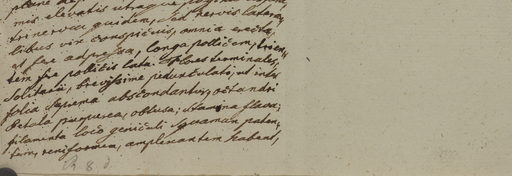 plane
mis elevatis utraque pagina
trinervia quidem, sed nervis latera,
libus vix conspicuis, omnia erecta,
et fere adpressa, longa pollicem, trien,
tem fere pollicis lata. Flores terminales,
solitarii, brevissime pedunculati, ut intra
folia suprema abscondantur, octandri
Petala purpurea, obtusa; stamina flava;
filamenta loco geniculi squamam paten,
tem, reniformem, amplexantem habent,
R. 8. d